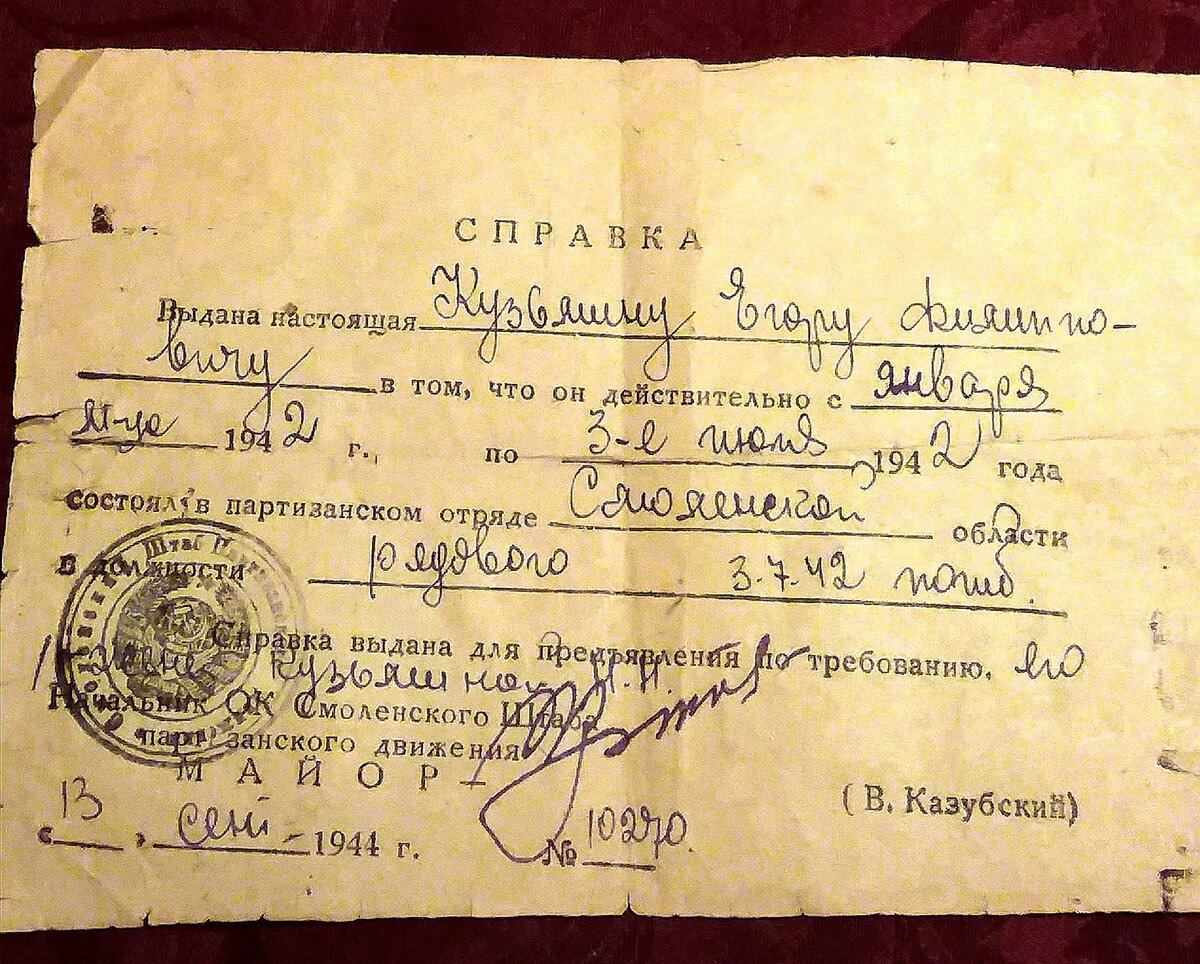 СПРАВКА
Выдана настоящая Кузьмину Егору Филиппо-
вичу в том, что он действительно с января
м-ца 1942 г., по 3-е июля 1942 года
состоял в партизанском отряде Смоленской области
в должности рядового 3-7-42 погиб.
Справка выдана для предъявления по требованию. его
жене Кузьминой
Начальник ОК Смоленского Штаба
партизанского движения
МАЙОР-
(В. Казубский)
"13" сент- 1944 г. № 10270.